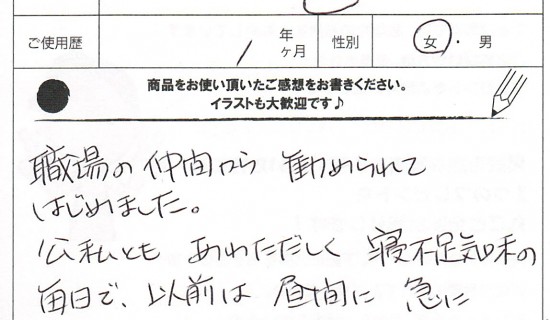 ご使用歴 / 年 ヶ月 性別 女・男
商品をお使い頂いたご感想をお書きください。
イラストも大歓迎です♪
職場の仲間から 勧められて
はじめました。
公私とも あわただしく 寝不足気味の
毎日で、以前は 昼間に 急に